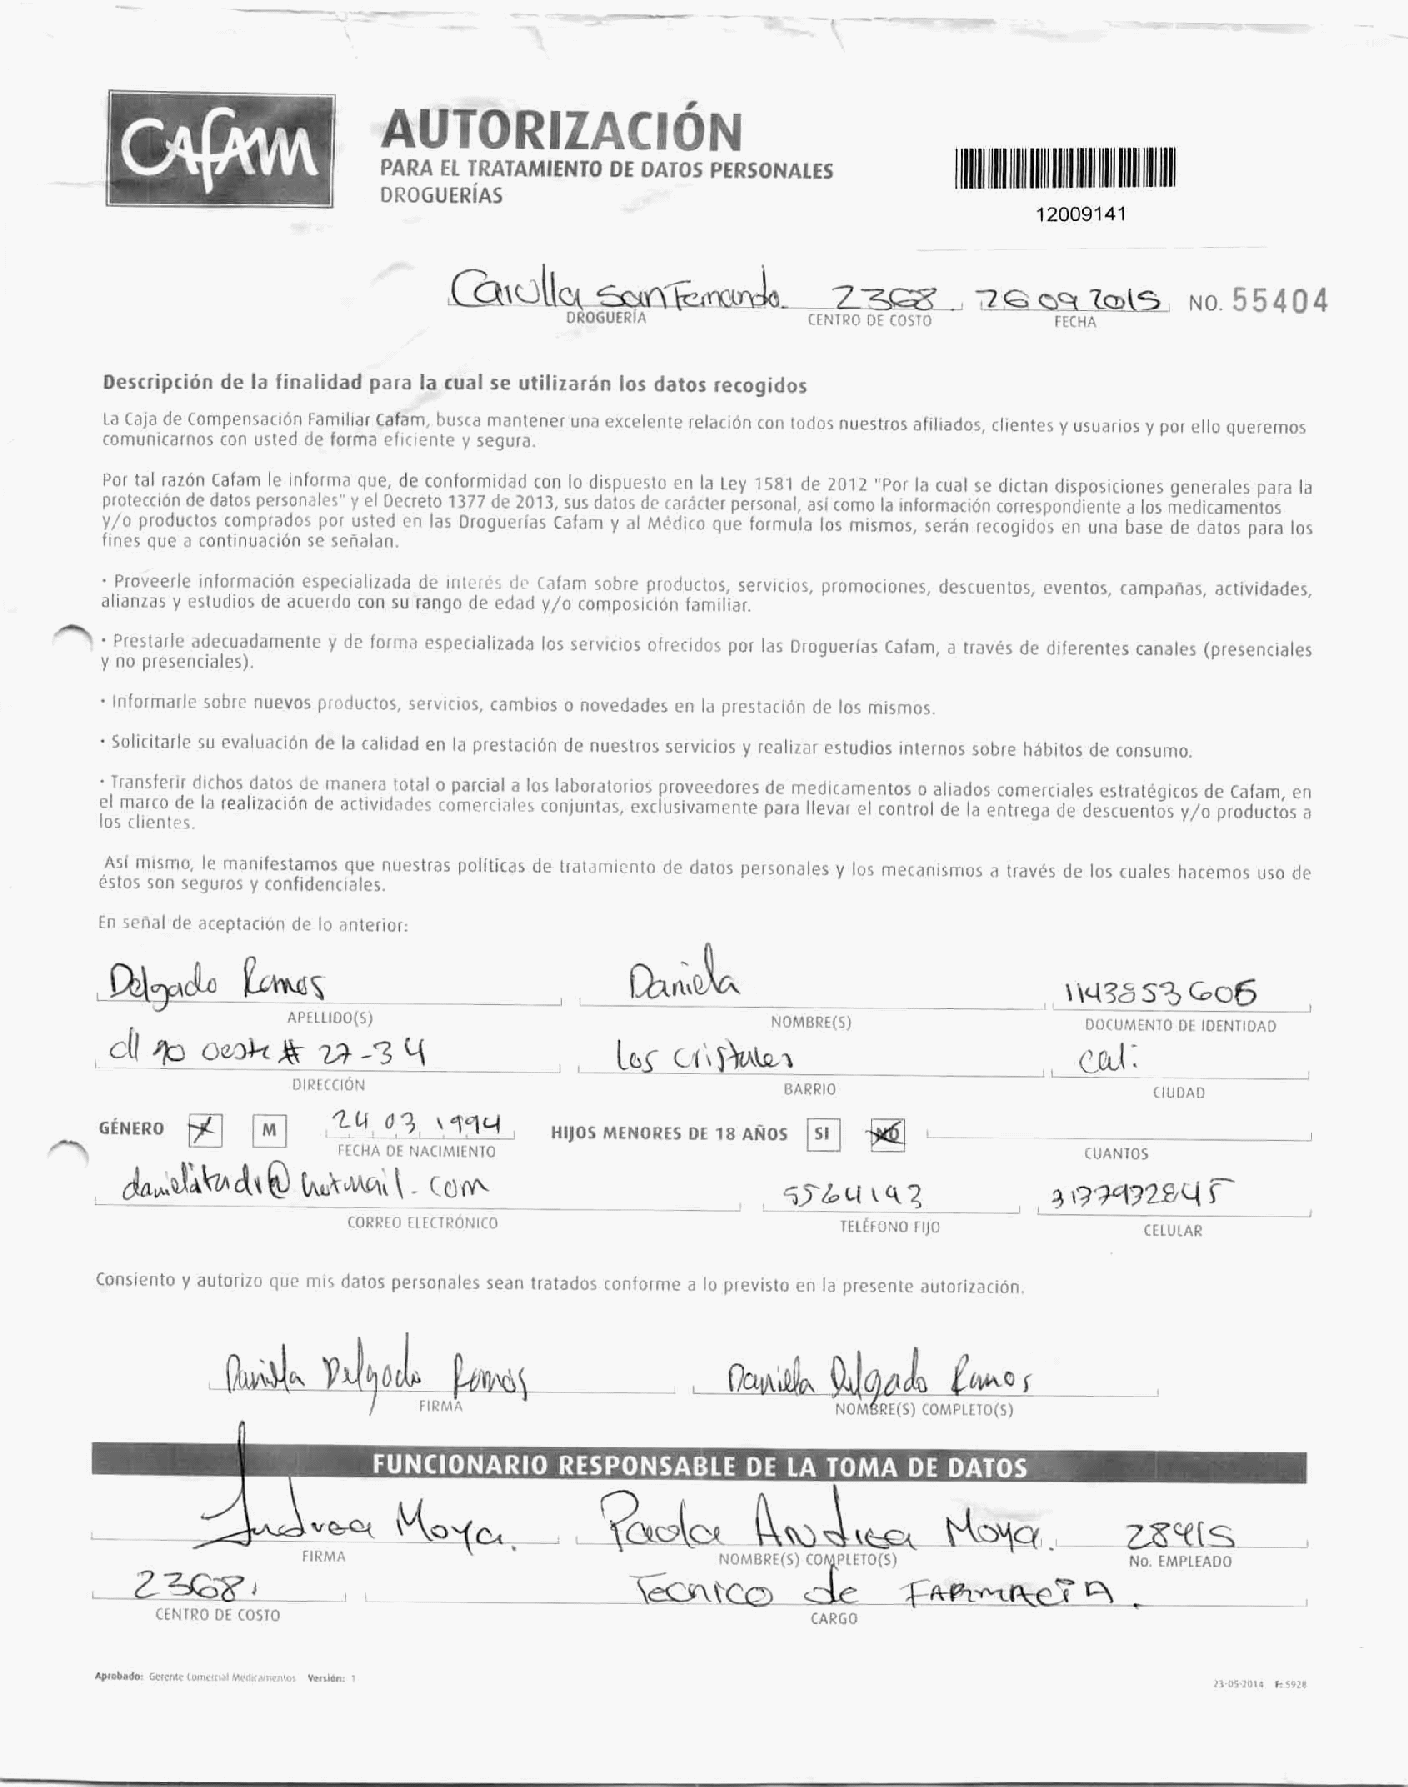 CAFAM
AUTORIZACIÓN
PARA EL TRATAMIENTO DE DATOS PERSONALES
DROGUERÍAS
12009141
Carulla San Fernando. 2368. 26 09 2015 NO. 55404
DROGUERÍA CENTRO DE COSTO FECHA
Descripción de la finalidad para la cual se utilizarán los datos recogidos
La Caja de Compensación Familiar Cafam, busca mantener una excelente relación con todos nuestros afiliados, clientes y usuarios y por ello queremos
comunicarnos con usted de forma eficiente y segura.
Por tal razón Cafam le informa que, de conformidad con lo dispuesto en la Ley 1581 de 2012 "Por la cual se dictan disposiciones generales para la
protección de datos personales" y el Decreto 1377 de 2013, sus datos de carácter personal, así como la información correspondiente a los medicamentos
y/o productos comprados por usted en las Droguerías Cafam y al Médico que formula los mismos, serán recogidos en una base de datos para los
fines que a continuación se señalan.
· Proveerle información especializada de interés de Cafam sobre productos, servicios, promociones, descuentos, eventos, campañas, actividades,
alianzas y estudios de acuerdo con su rango de edad y/o composición familiar.
· Prestarle adecuadamente y de forma especializada los servicios ofrecidos por las Droguerías Cafam, a través de diferentes canales (presenciales
y no presenciales).
· Informarle sobre nuevos productos, servicios, cambios o novedades en la prestación de los mismos.
· Solicitarle su evaluación de la calidad en la prestación de nuestros servicios y realizar estudios internos sobre hábitos de consumo.
· Transferir dichos datos de manera total o parcial a los laboratorios proveedores de medicamentos o aliados comerciales estratégicos de Cafam, en
el marco de la realización de actividades comerciales conjuntas, exclusivamente para llevar el control de la entrega de descuentos y/o productos a
los clientes.
Así mismo, le manifestamos que nuestras políticas de tratamiento de datos personales y los mecanismos a través de los cuales hacemos uso de
éstos son seguros y confidenciales.
En señal de aceptación de lo anterior:
Delgado Ramos Daniela 1143853606
APELLIDO(S) NOMBRE(S) DOCUMENTO DE IDENTIDAD
oeste # 27-34 los cristales cali
DIRECCIÓN BARRIO CIUDAD
GÉNERO M 24 03 1994 HIJOS MENORES DE 18 AÑOS SI NO
FECHA DE NACIMIENTO CUANTOS
@hotmail.com 5564193 3137932845
CORREO ELECTRÓNICO TELÉFONO FIJO CELULAR
Consiento y autorizo que mis datos personales sean tratados conforme a lo previsto en la presente autorización.
Daniela Delgado Ramos Daniela Delgado Ramos
FIRMA NOMBRE(S) COMPLETO(S)
FUNCIONARIO RESPONSABLE DE LA TOMA DE DATOS
Andrea Moya. Paola Andrea Moya. 28415
FIRMA NOMBRE(S) COMPLETO(S) No. EMPLEADO
2368. Tecnico de FARMACIA.
CENTRO DE COSTO CARGO
Aprobado: Gerente Comercial Medicamentos Versión: 1 23-05-2014 F: 5928